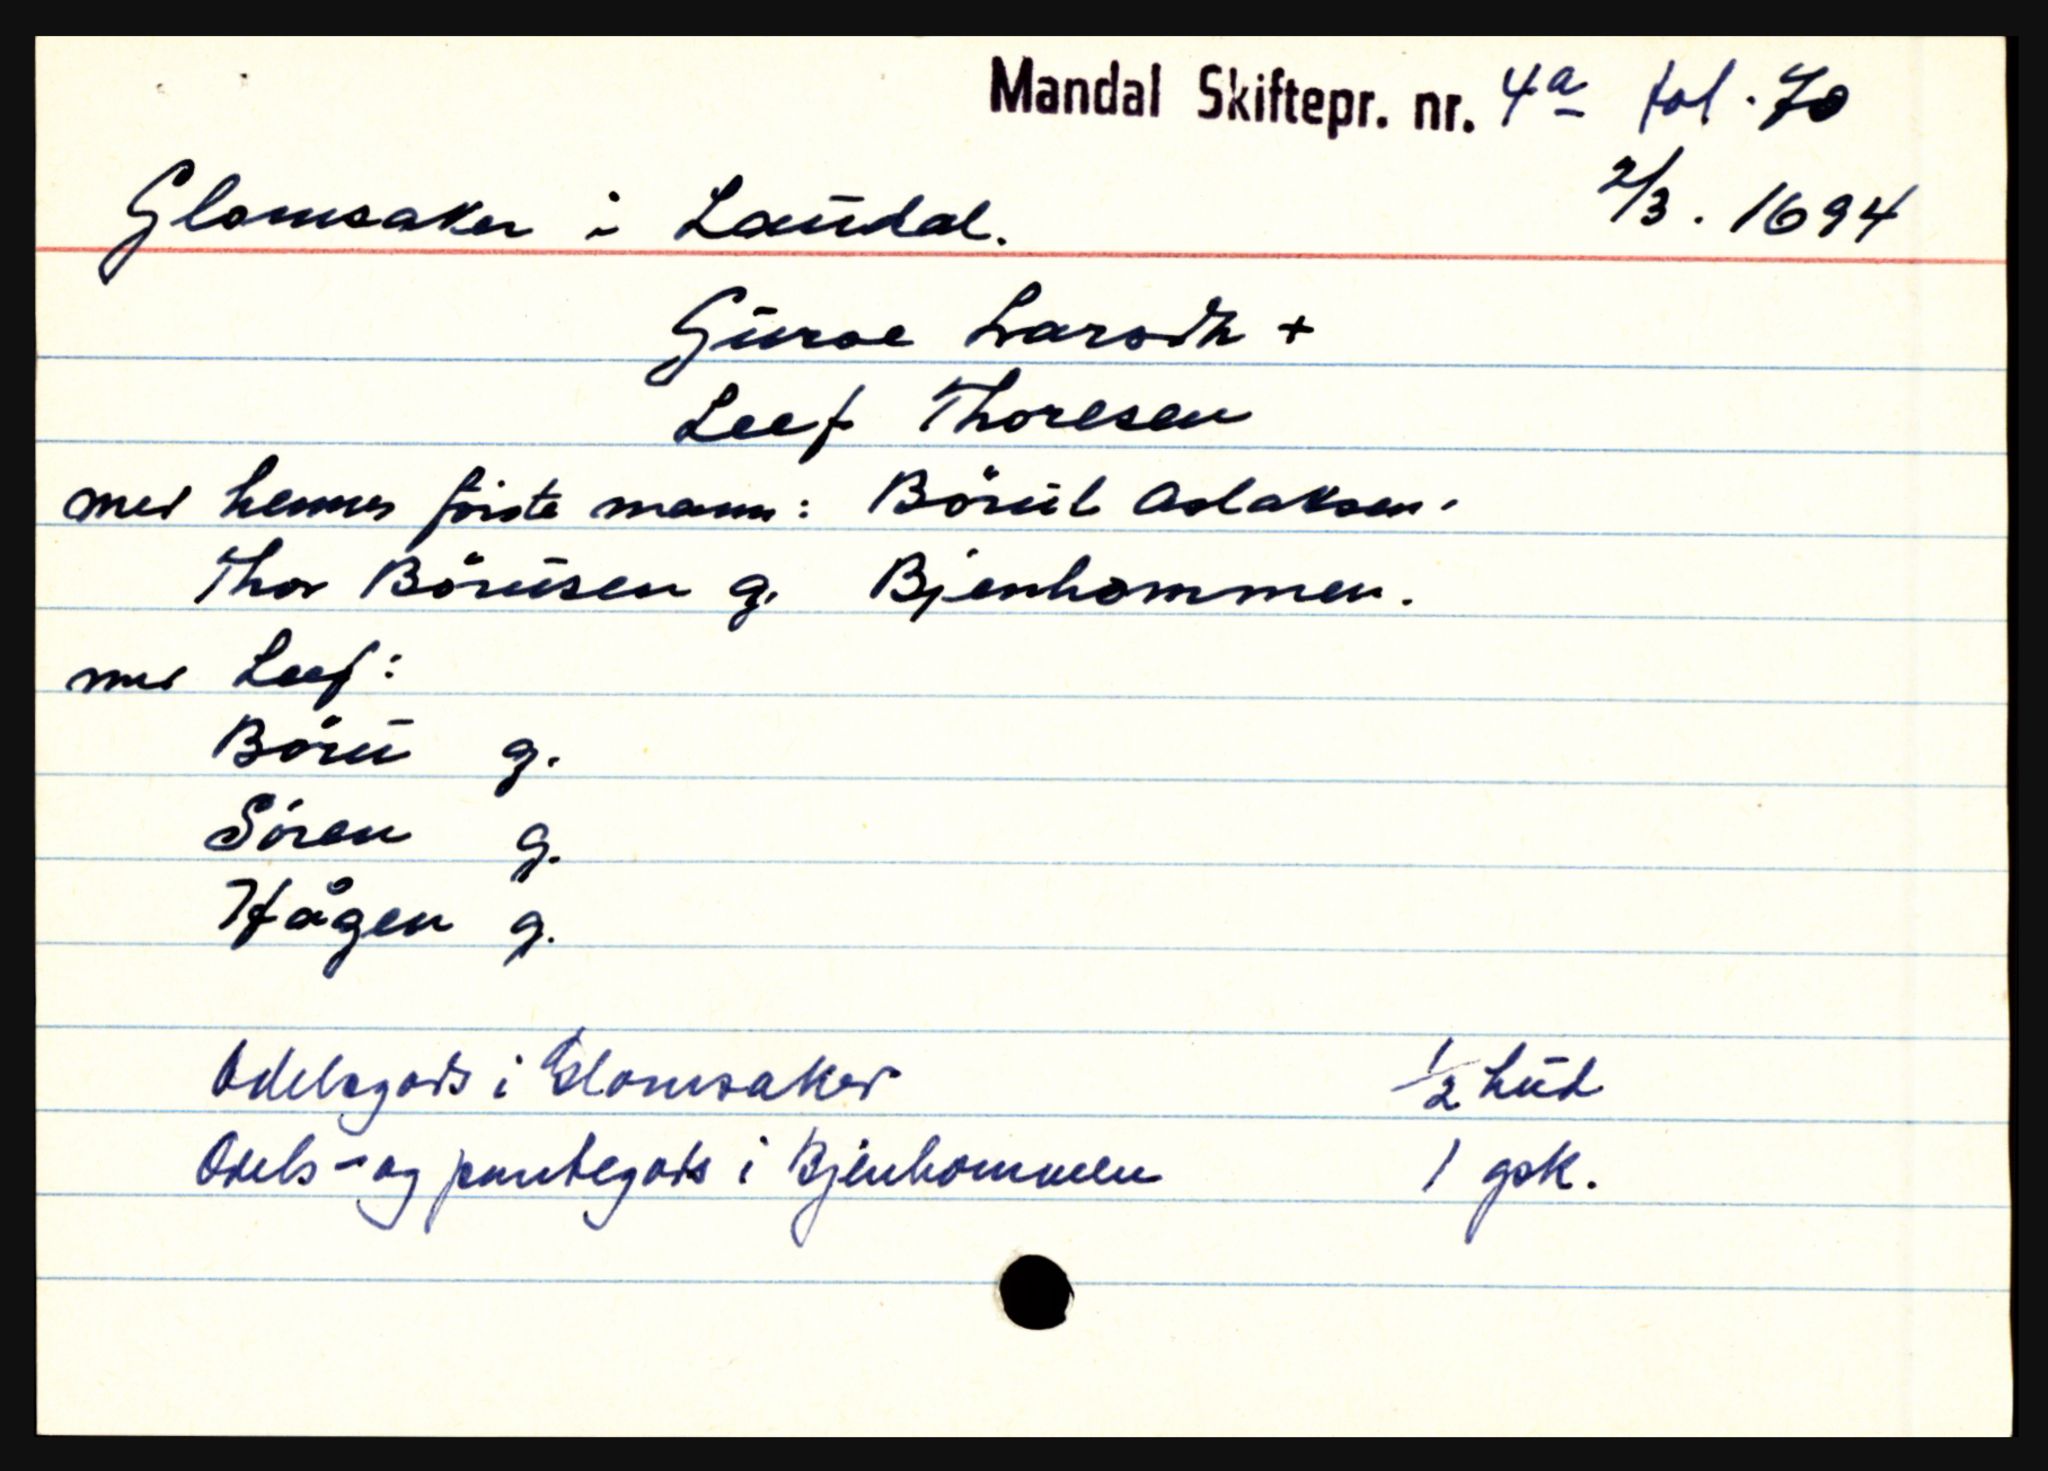 Mandal Skiftepr. nr. 4a fol. 70
2/3. 1694
Glomsaker i Laudal.
Guroe Larsdtr +
Leef Thoresen
med hennes første mann: Börul Aslaksen.
Thor Börusen g. Bjenhommen.
med Leef:
Böru g.
Sören g.
Hågen g.
Odelsgods i Glomsaker 1/2 hud
Odels- og pantegods i Bjenhommen 1 gsk.